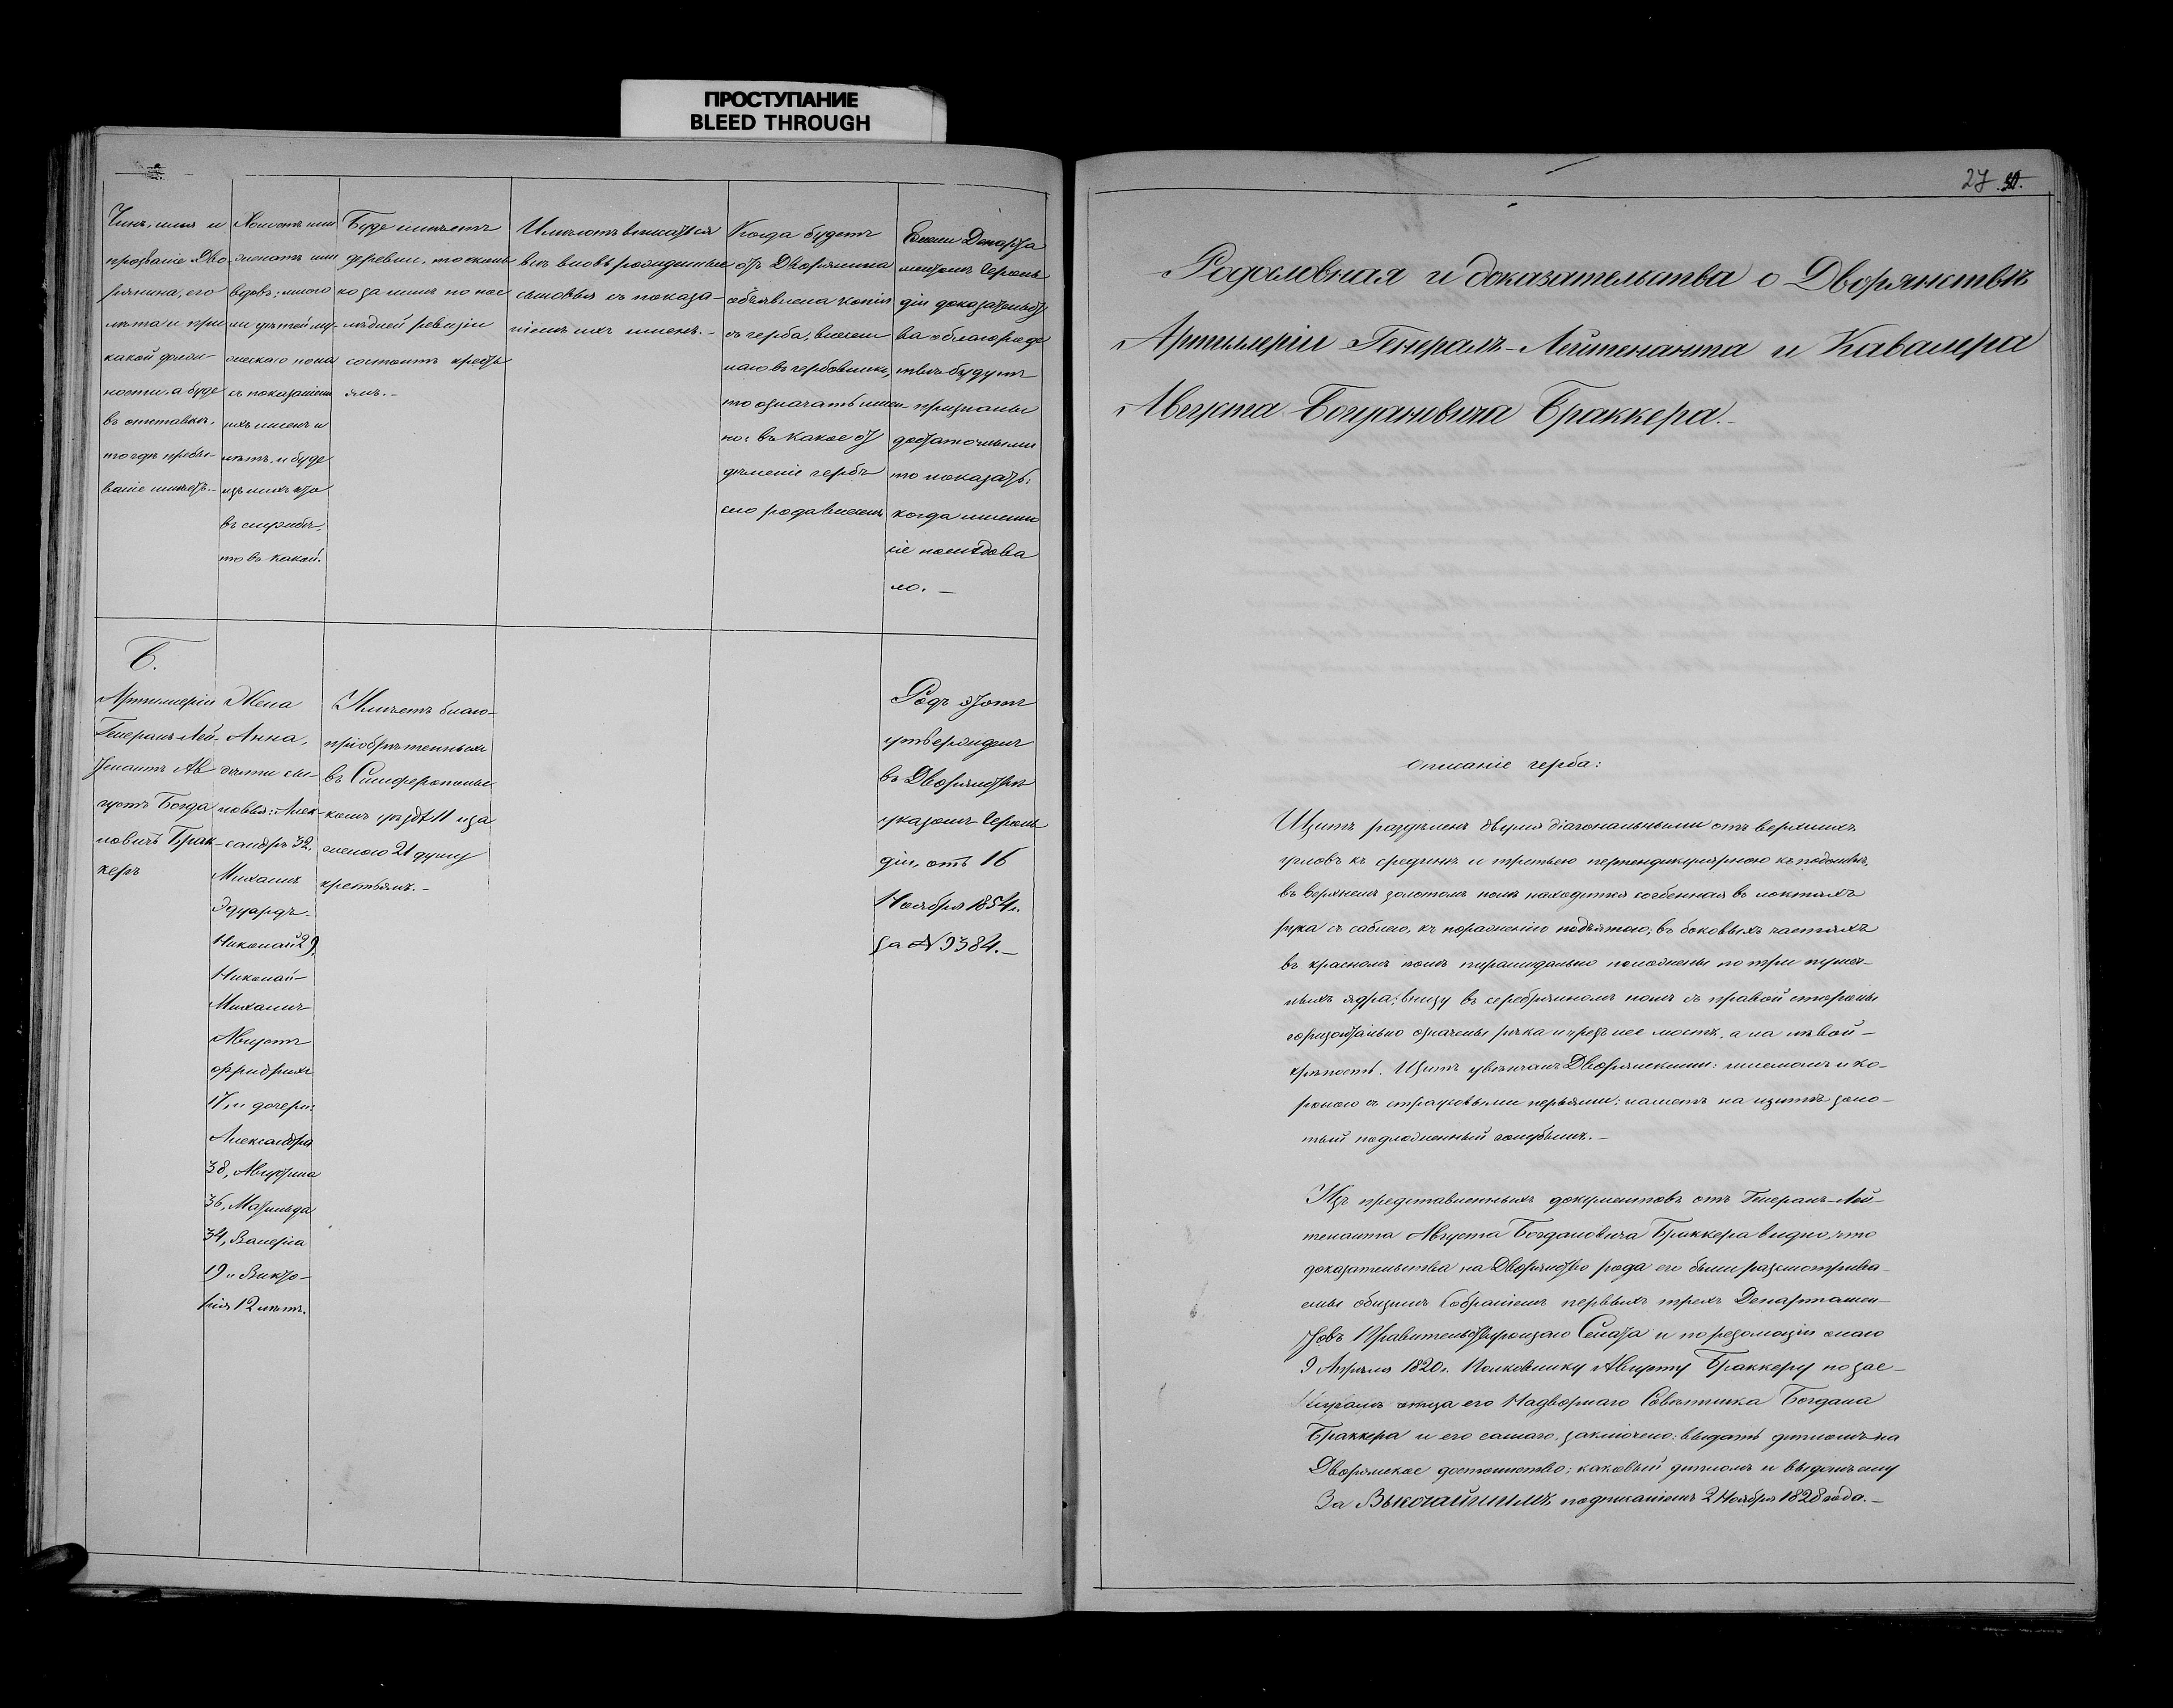 ПРОСТУПАНИЕ
BLEED THROUGH
Чинъ, имя и
прозваніе Дво-
рянина, его
лѣта и при
какой долж-
ности, а буде
въ отставкѣ,
то гдѣ пребы-
ваніе имѣетъ.-
Холостъ или
женатъ или
вдовъ; много
ли дѣтей му-
жескаго пола
съ показаніемъ
ихъ именъ и
лѣтъ, и буде
изъ нихъ кто
въ службѣ,
то въ какой.
Буде имѣетъ
деревни, то сколь
ко за нимъ по пос
лѣдней ревизіи
состоитъ кресть
янъ.-
Имѣютъ вписаться
всѣ вновь рожденные
сыновья съ показа-
ніемъ ихъ именъ.-
Когда будетъ
отъ Дворянина
объявлена копія
съ герба, внесен
наго въ гербовникъ,
то означать имен-
но: въ какое от
дѣленіе гербъ
его рода внесенъ
Ежели Департа
ментомъ Героль
діи доказательст
ва о благород
ствѣ будутъ
признаны
достаточными
то показать:
когда именно
сіе послѣдова
ло. —
Б.
Артиллеріи
Генералъ-Лей-
тенантъ Ав
густъ Богда
новичъ Брак-
керъ
Жена
Анна,
дѣти сы-
новья: Алек-
сандръ 32,
Михаилъ
Эдуардъ-
Николай 29,
Николай-
Михаилъ
Августъ
Фридрихъ
17, и дочери:
Александра
38, Августина
36, Матильда
34, Валерія
19 и Викто-
рія 12 лѣтъ.
Имѣетъ благо-
пріобрѣтенныхъ
въ Симферополь
комъ уѣздѣ 11 и за
женою 21 душу
крестьянъ.-
Родъ этотъ
утвержденъ
въ Дворянствѣ
указомъ Героль
діи, отъ 16
Ноября 1854 г.
за № 9384.—
27
Родословная и доказательства о Дворянствѣ
Артиллеріи Генералъ-Лейтенанта и Кавалера
Августа Богдановича Браккера.-
Описаніе герба:
Щитъ раздѣленъ двумя діагональными отъ верхнихъ
угловъ къ срединѣ и третьею перпендикулярною къ подошвѣ,
въ верхнемъ золотомъ полѣ находится согбенная въ локтяхъ
рука съ саблею, къ пораженію поднятою; въ боковыхъ частяхъ
въ красномъ полѣ пирамидально положены по три пушеч-
ныхъ ядра; внизу въ серебряномъ полѣ съ правой стороны
горизонтально означены рѣка и чрезъ нее мостъ, а на лѣвой-
крѣпость. Щитъ увѣнчанъ Дворянскими: шлемомъ и ко-
роною съ страусовыми перьями; наметъ на щитѣ золо-
тый подложенный голубымъ.-
Изъ представленныхъ документовъ отъ Генералъ-Лей-
тенанта Августа Богдановича Браккера видно, что
доказательства на Дворянство рода его были разсмотрива-
емы общимъ Собраніемъ первыхъ трехъ Департамен-
товъ Правительствующаго Сената и по резолюціи онаго
9 Апрѣля 1820 г. Полковнику Августу Браккеру по зас-
лугамъ отца его Надворнаго Совѣтника Богдана
Браккера и его самаго, заключено: выдать дипломъ на
Дворянское достоинство; каковый дипломъ и выданъ ему
За Высочайшимъ подписаніемъ 2 Ноября 1828 года.-